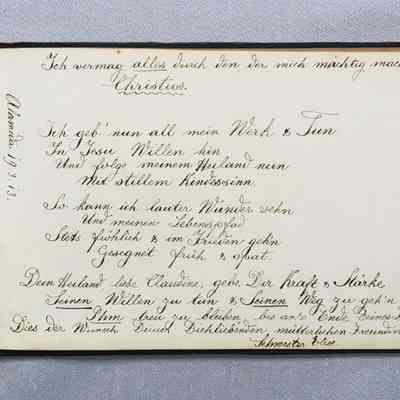 Ich vermag alles durch den der mich mächtig mac
Christus.
Alameda 19.3.13.
Ich geb' nun all mein Werk & Tun
In Jesu Willen hin
Und folge meinem Heiland nun
Mit stillem Kindessinn.
So kann ich lauter Wunder sehn
Und meinen Lebenspfad
Stets fröhlich & im Frieden gehn
Gesegnet früh & spat.
Dein Heiland liebe Claudine, gebe Dir Kraft & Stärke
Seinen Willen zu tun & Seinen Weg zu geh'n
Ihm treu zu bleiben, bis an's Ende Deines
Dies der Wunsch Deiner Dichliebenden, mütterlichen Freundin
Schwester Elise